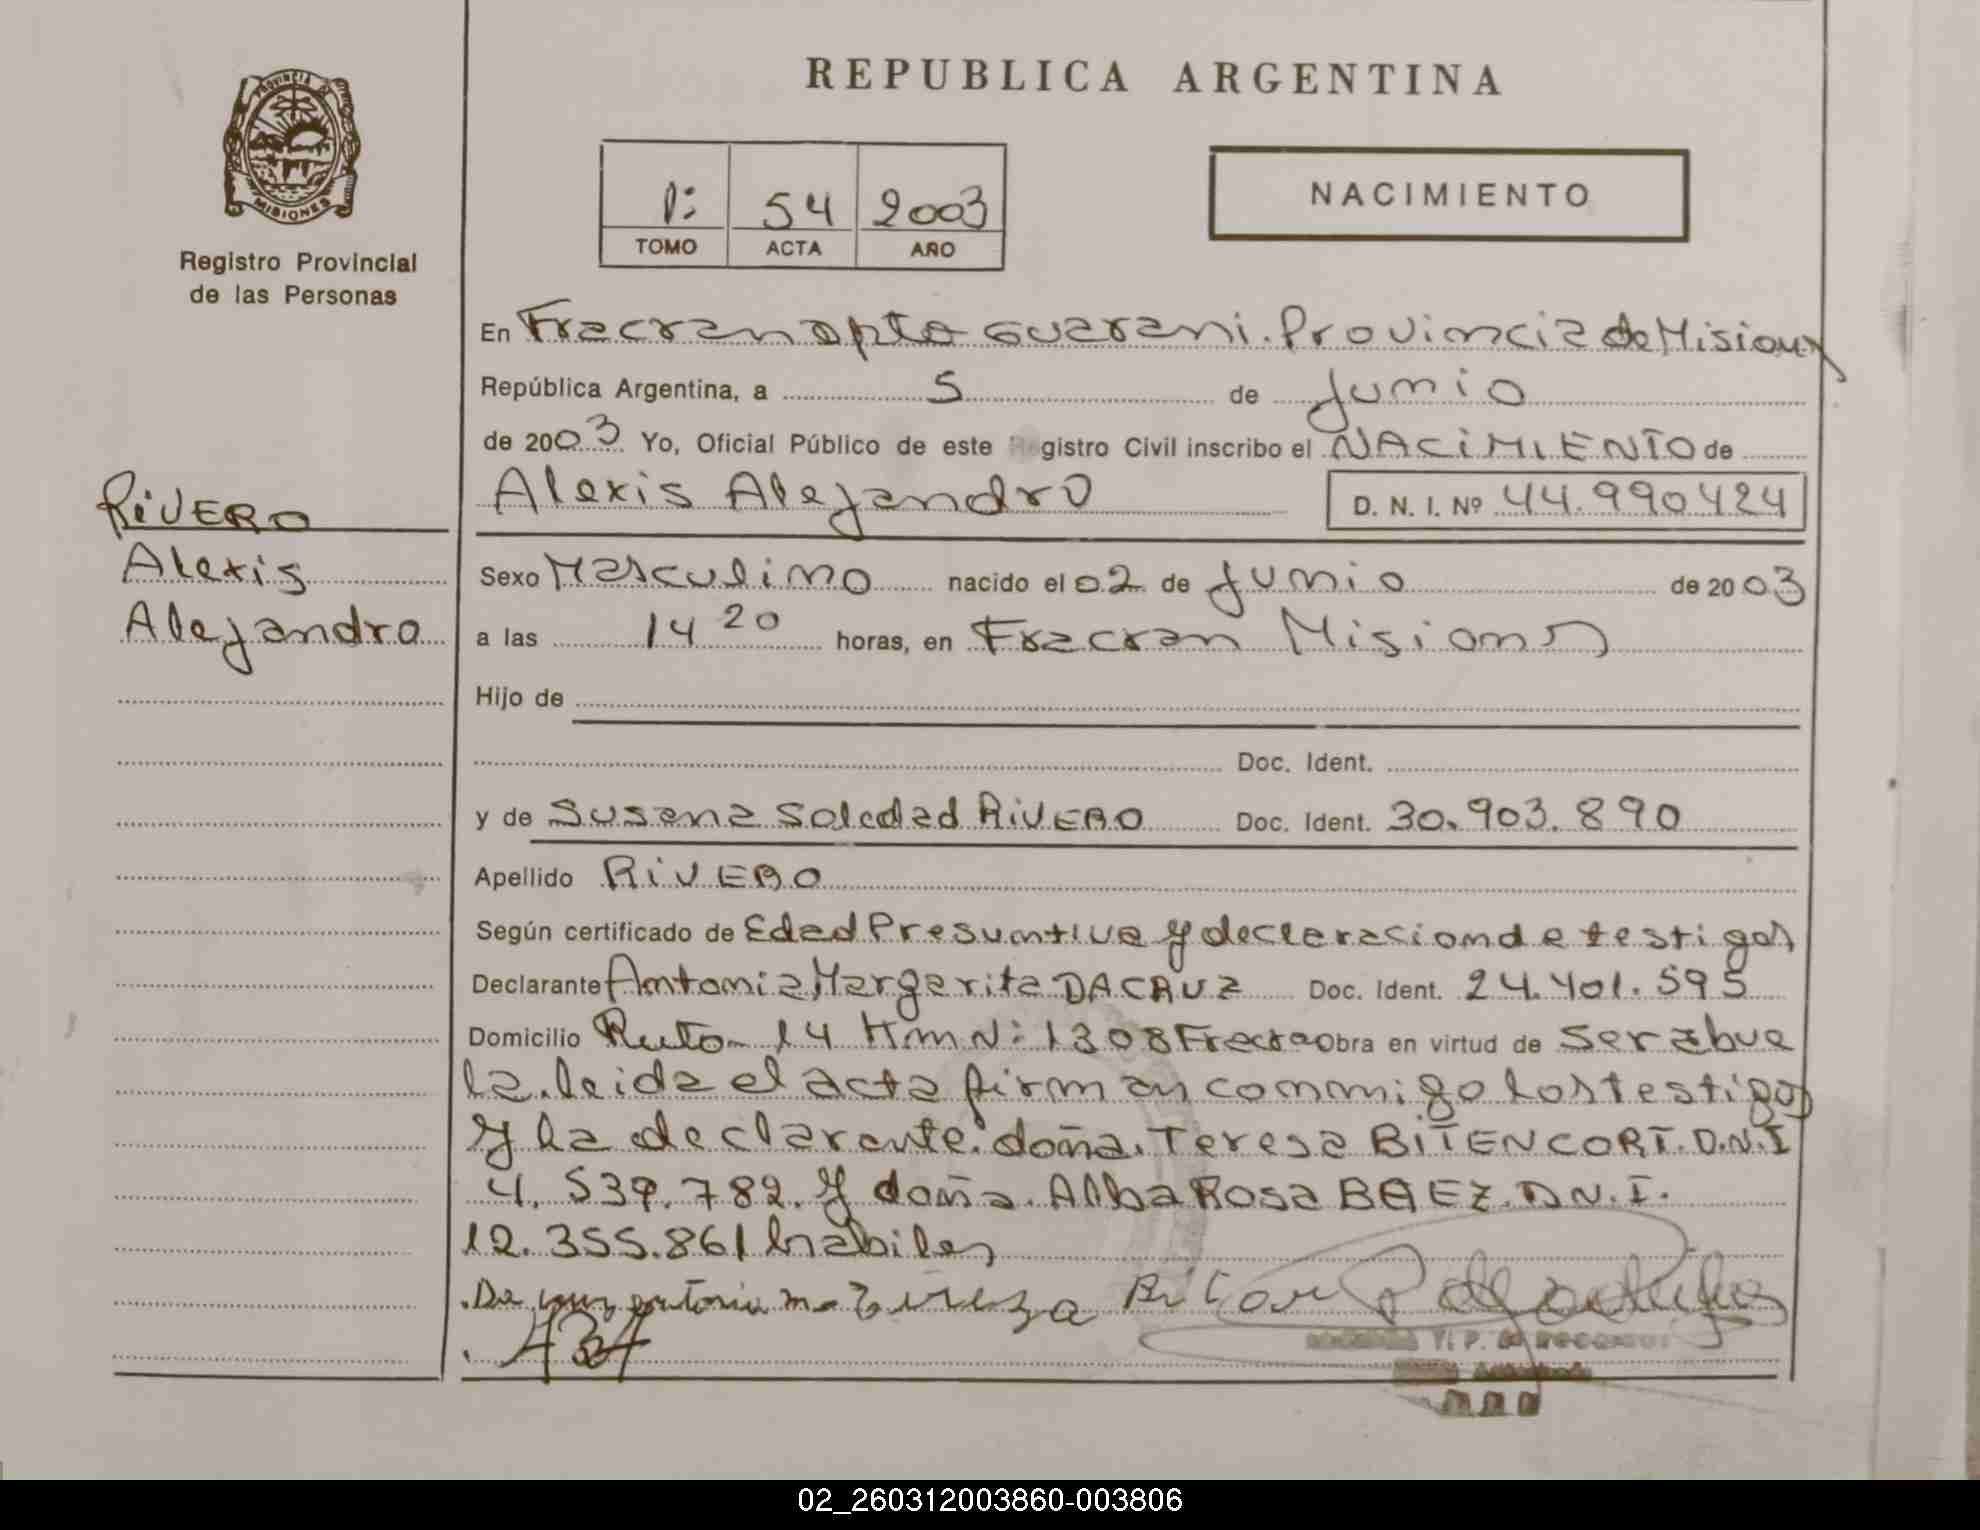 REPUBLICA ARGENTINA
PROVINCIA DE
MISIONES
Registro Provincial
de las Personas
1: 54 2003
TOMO ACTA AÑO
NACIMIENTO
En Fracran Dpto Guarani. Provincia de Misiones
República Argentina, a 5 de Junio
de 2003 Yo, Oficial Público de este Registro Civil inscribo el NACIMIENTO de
Alexis Alejandro D. N. I. Nº 44.990424
RIVERO
Alexis
Alejandro
Sexo Masculino nacido el 02 de Junio de 2003
a las 14 20 horas, en Fracran Misiones
Hijo de
Doc. Ident.
y de Susana Soledad RIVERO Doc. Ident. 30.903.890
Apellido RIVERO
Según certificado de Edad Presuntiva y declaracion de testigos
Declarante Antonia Margarita DACRUZ Doc. Ident. 24.401.595
Domicilio Ruta 14 Km N: 1308 Fracran Obra en virtud de ser abue
la. leida el acta firman conmigo los testigos
y la declarante. doña. Teresa BITENCORT. D.N.I
4. 539.782. y doña. Alba Rosa BAEZ. D.N.I.
12.355.861 habiles
02_260312003860-003806